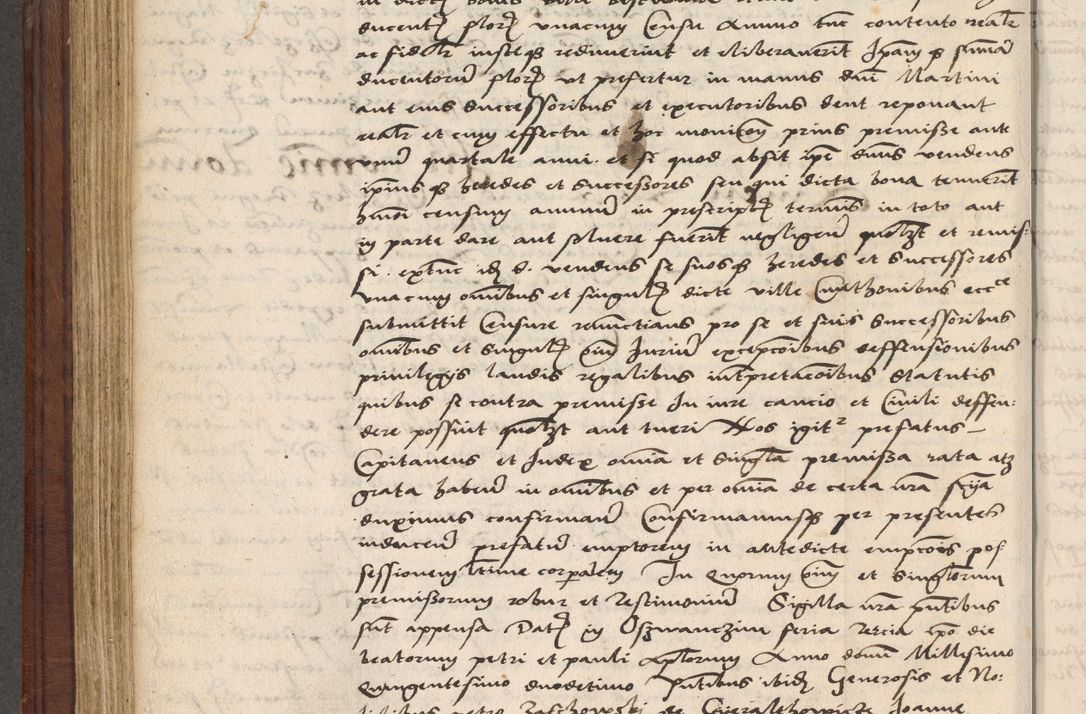 ducent flor unacum Censu Annuo tunc contento realr
ac fidelr iusteqz redimerint et eliberaverit Ipam qz summam
ducentorum flor ut prefertur in manus dnm Martini
aut eius Successoribus et executoribus dent reponant
realr et cum effectu et hoc monicione prius premisse ante
unum quartale anni et si quod absit ipe dnus vendens
ipius qz heredes et Successores seu qui dicta bona tenuerit
hmoi censum annuum in prescript terminis in toto aut
in parte dare aut solvere fuerit negligens quolzt et remis:
si extunc id d. vendens se suosqz heredes et Successores
unacum omnibus et singulis dicte ville Cmethonibus ecce
submittit Censure renunctians pro se et suis Successoribus
omnibus et singulis oim Iurium excepcoibus deffensionibus
privilegys laudis regalibus intpretacoibus Statutis
quibus se contra premisse In iure canoico et Civili deffen:
dere possint quolzt aut tueri Nos igitr prefatus
Capitaneus et Iudex omnia et Singla premissa rata atz
grata habem in omnibus et per omnia de certa nra scija
duximus confirmand Confirmamusqz per presentes
inducend prefatum emptorem in antedicte empcois pos
sessionem ltime corpalem In Quorum oim et Singlorum
premissorum robur et Testimonium Sigilla nra pntibus
sunt appensa Dat in Oszwanczim feria Tercia ipo die
beatorum petri et pauli Aplorum Anno domini Millesimo
Quingentesimo duodecimo Pntibus ibid Generosis et No: